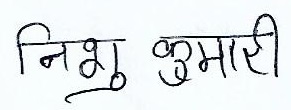 निशु कुमारी